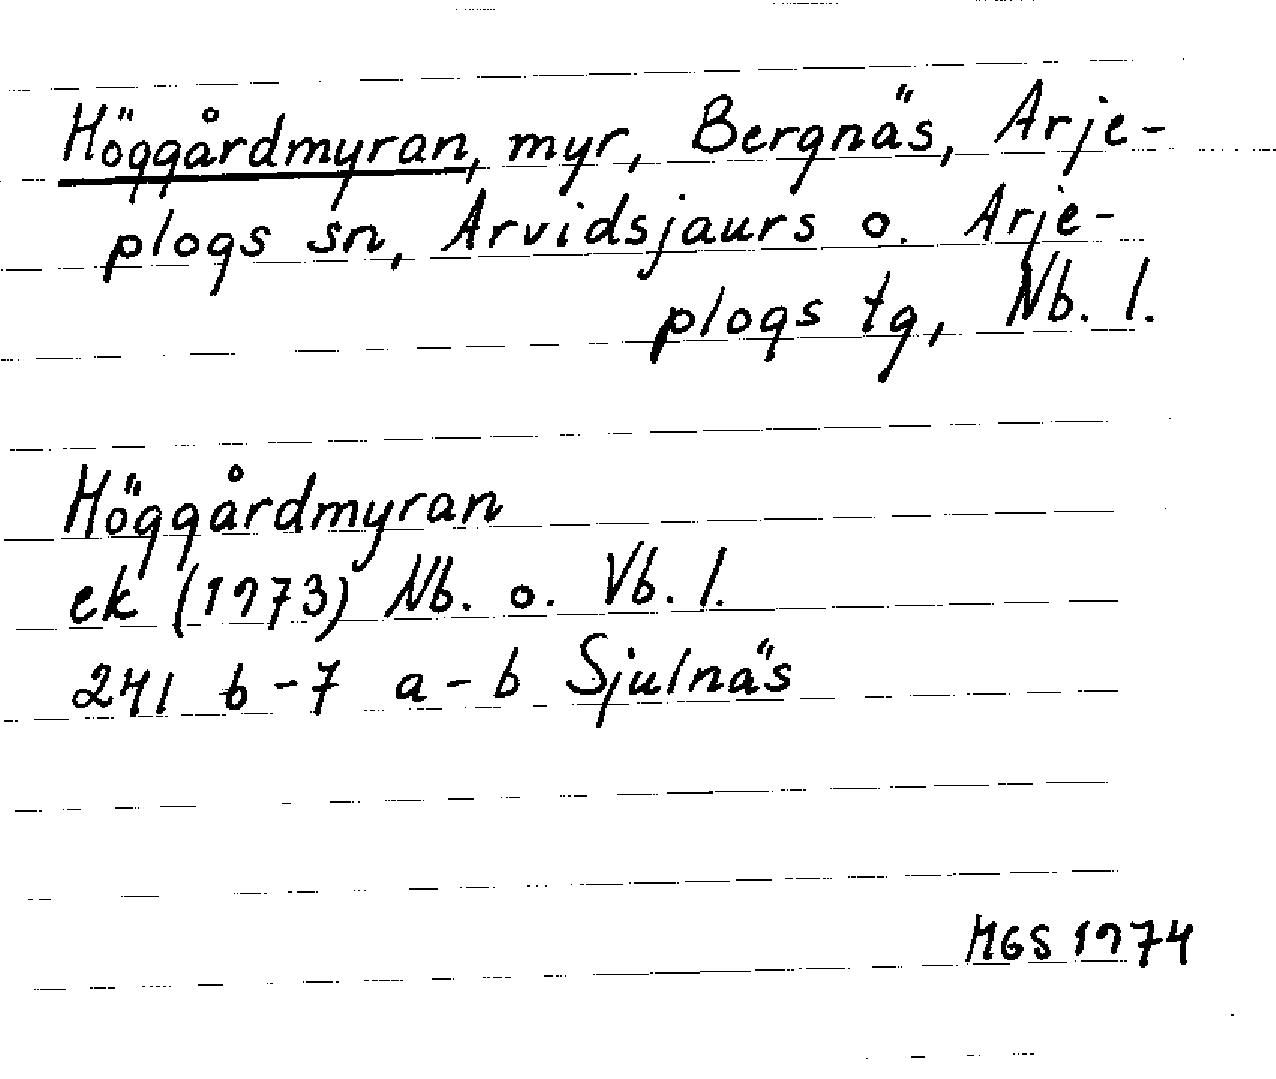 Höggårdmyran, myr, Bergnäs, Arje-
plogs sn, Arvidsjaurs o. Arje-
plogs tg, Nb. l.
Höggårdmyran
ek (1973) Nb. o. Vb. l.
241 b-7 a-b Sjulnäs
HGS 1974